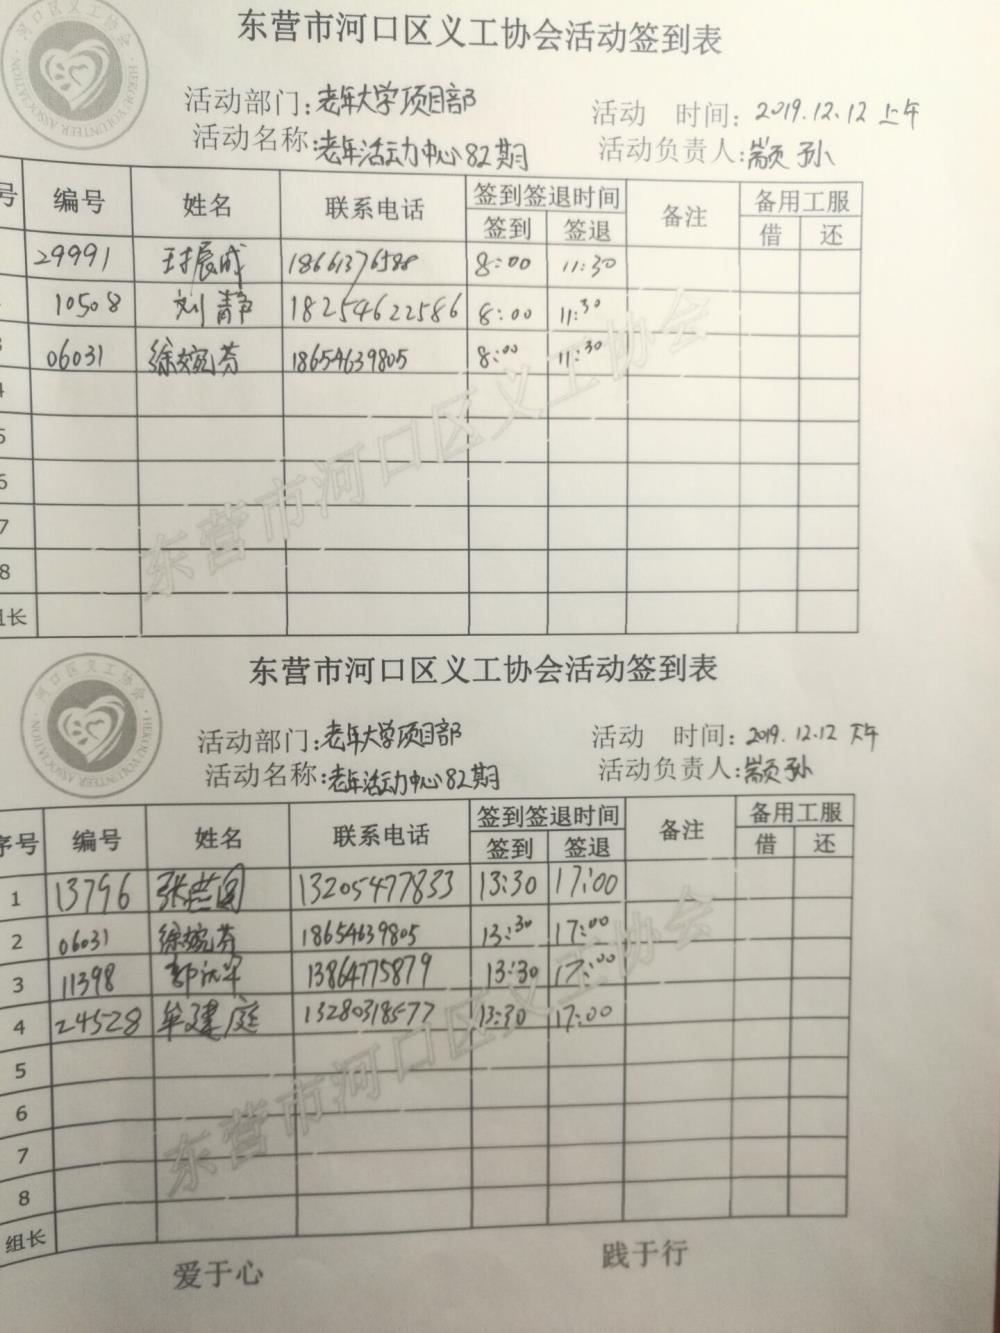 东营市河口区义工协会活动签到表
活动部门:老年大学项目部 活动 时间: 2019.12.12 上午
活动名称:老年活动中心82期 活动负责人:颛孙
号 编号 姓名 联系电话 签到签退时间 备注 备用工服
签到 签退 借 还
29991 辰成 18661376588 8:00 11:30
10508 刘静 18254622586 8:00 11:30
06031 徐婉芬 18654639805 8:00 11:30
4
5
6
7
8
组长
东营市河口区义工协会
东营市河口区义工协会活动签到表
河口区义工协会
HEKOU VOLUNTEER ASSOCIATION
活动部门:老年大学项目部 活动 时间: 2019.12.12 下午
活动名称:老年活动中心82期 活动负责人:颛孙
序号 编号 姓名 联系电话 签到签退时间 备注 备用工服
签到 签退 借 还
1 13796 张 13205477833 13:30 17:00
2 06031 徐婉芬 18654639805 13:30 17:00
3 11398 13864775879 13:30 17:00
4 24528 牟建庭 13280318577 13:30 17:00
5
6
7
8
组长
东营市河口区义工协会
爱于心 践于行